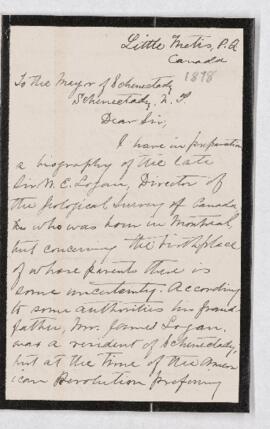 Little Metis, P.Q
Canada
1898
To the Mayor of Schenectady
Schenectady, N. Y.
Dear Sir,
I have in preparation
a biography of the late
Sir W. E. Logan, Director of
the Geological Survey of Canada
who was born in Montreal,
but concerning the birthplace
of whose parents there is
some uncertainty. According
to some authorities his grand-
father, Mr. James Logan.
was a resident of Schenectady,
but at the time of the Amer
ican Revolution preferring